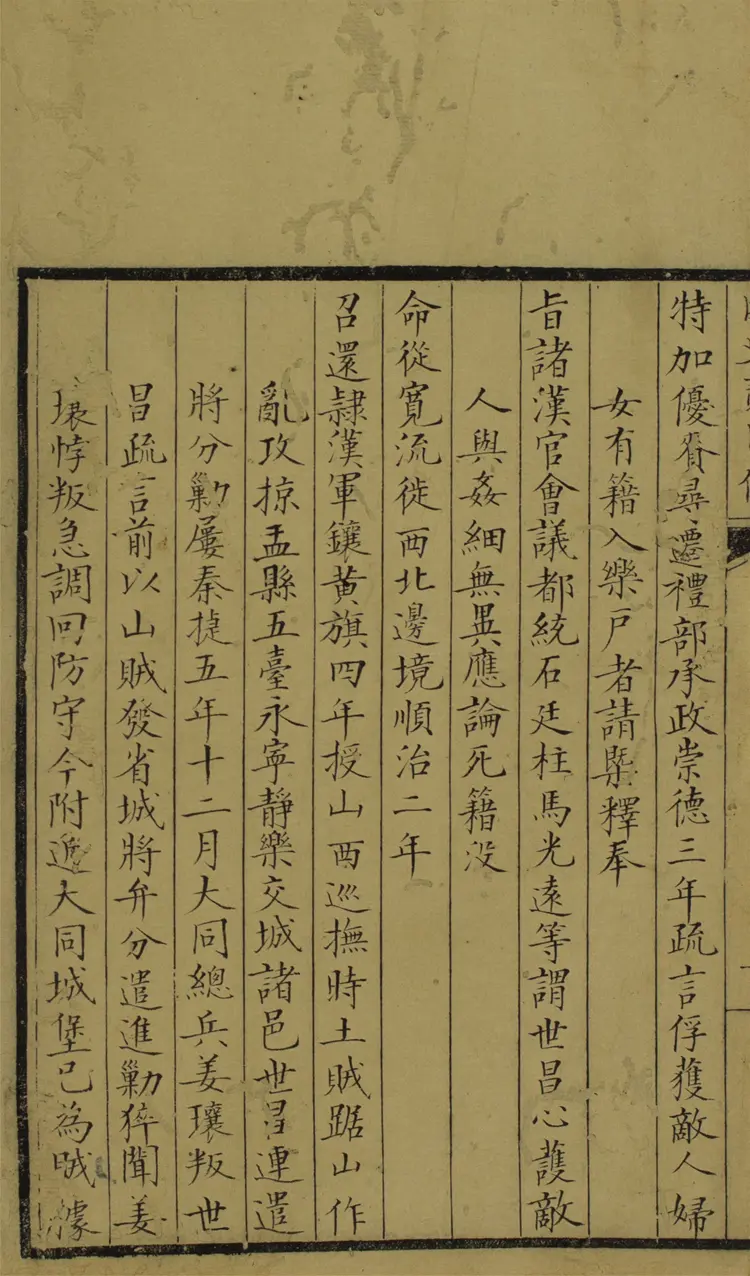 特加優眷尋遷禮部承政崇德三年疏言俘獲敵人婦
女有籍入樂戶者請槩釋奉
旨諸漢官會議都統石廷柱馬光遠等謂世昌心護敵
人與姦細無異應論死籍沒
命從寬流徙西北邊境順治二年
召還隷漢軍鑲黃旗四年授山西巡撫時土賊踞山作
亂攻掠盂縣五臺永寧靜樂交城諸邑世昌連遣
將分勦屢奏捷五年十二月大同總兵姜瓖叛世
昌疏言前以山賊發省城將弁分遣進勦猝聞姜
瓖悖叛急調回防守今附近大同城堡已為賊據